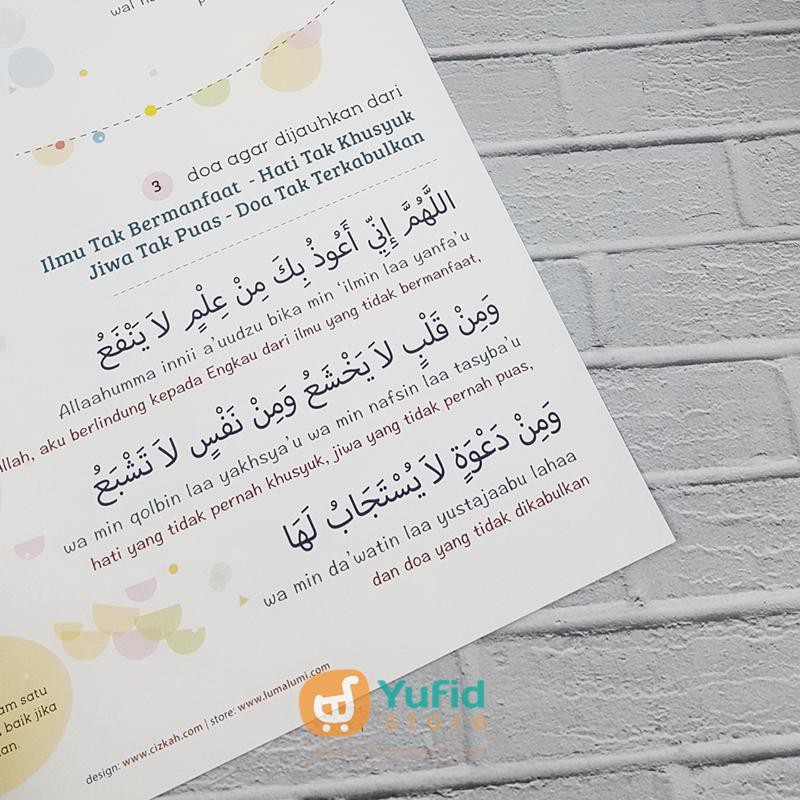 wal
3
doa agar dijauhkan dari
Ilmu Tak Bermanfaat - Hati Tak Khusyuk
Jiwa Tak Puas - Doa Tak Terkabulkan
اللَّهُمَّ إِنِّي أَعُوذُ بِكَ مِنْ عِلْمٍ لاَ يَنْفَعُ
Allaahumma innii a'uudzu bika min 'ilmin laa yanfa'u
llah, aku berlindung kepada Engkau dari ilmu yang tidak bermanfaat,
وَمِنْ قَلْبٍ لاَ يَخْشَعُ وَمِنْ نَفْسٍ لاَ تَشْبَعُ
wa min qolbin laa yakhsya'u wa min nafsin laa tasyba'u
hati yang tidak pernah khusyuk, jiwa yang tidak pernah puas,
وَمِنْ دَعْوَةٍ لاَ يُسْتَجَابُ لَهَا
wa min da'watin laa yustajaabu lahaa
dan doa yang tidak dikabulkan
am satu
baik jika
an.
design: www.cizkah.com | store: www.lumalumi.com
Yufid
store